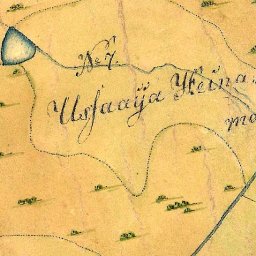 № 7.
Ussaaja Heina
ma